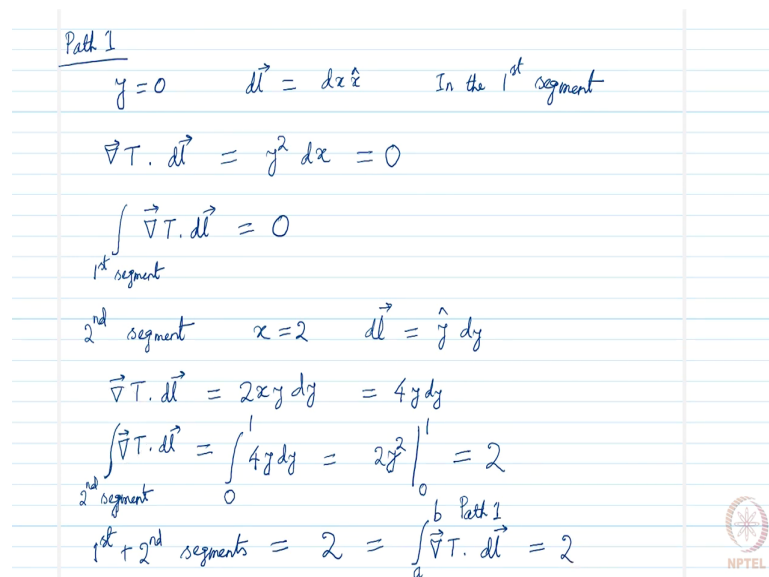 Path 1
y = 0 d\vec{l} = dx x̂ In the 1^{st} segment
\vec{∇}T. d\vec{l} = y² dx = 0
∫_{1^{st} segment} \vec{∇}T. d\vec{l} = 0
2^{nd} segment x = 2 d\vec{l} = ŷ dy
\vec{∇}T. d\vec{l} = 2xy dy = 4y dy
∫_{2^{nd} segment} \vec{∇}T. d\vec{l} = ∫_0^1 4y dy = 2y² |_0^1 = 2
1^{st} + 2^{nd} segments = 2 = ∫_a^{b Path 1} \vec{∇}T. d\vec{l} = 2
NPTEL